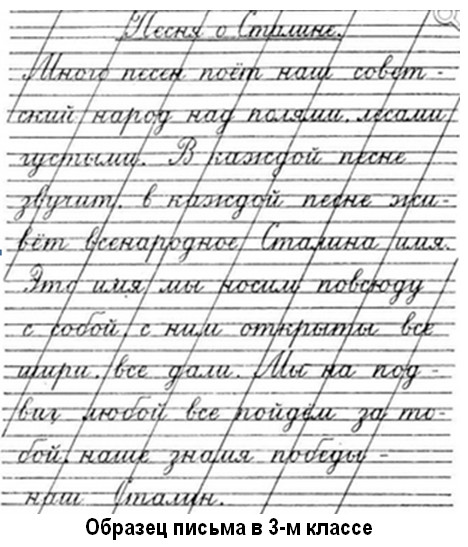 Песня о Сталине.
Много песен поёт наш совет-
ский народ над полями, лесами
густыми. В каждой песне
звучит, в каждой песне жи-
вёт всенародное Сталина имя.
Это имя мы носим повсюду
с собой, с ним открыты все
шири, все дали. Мы на под-
виг любой все пойдём за то-
бой, наше знамя победы -
наш Сталин.
Образец письма в 3-м классе